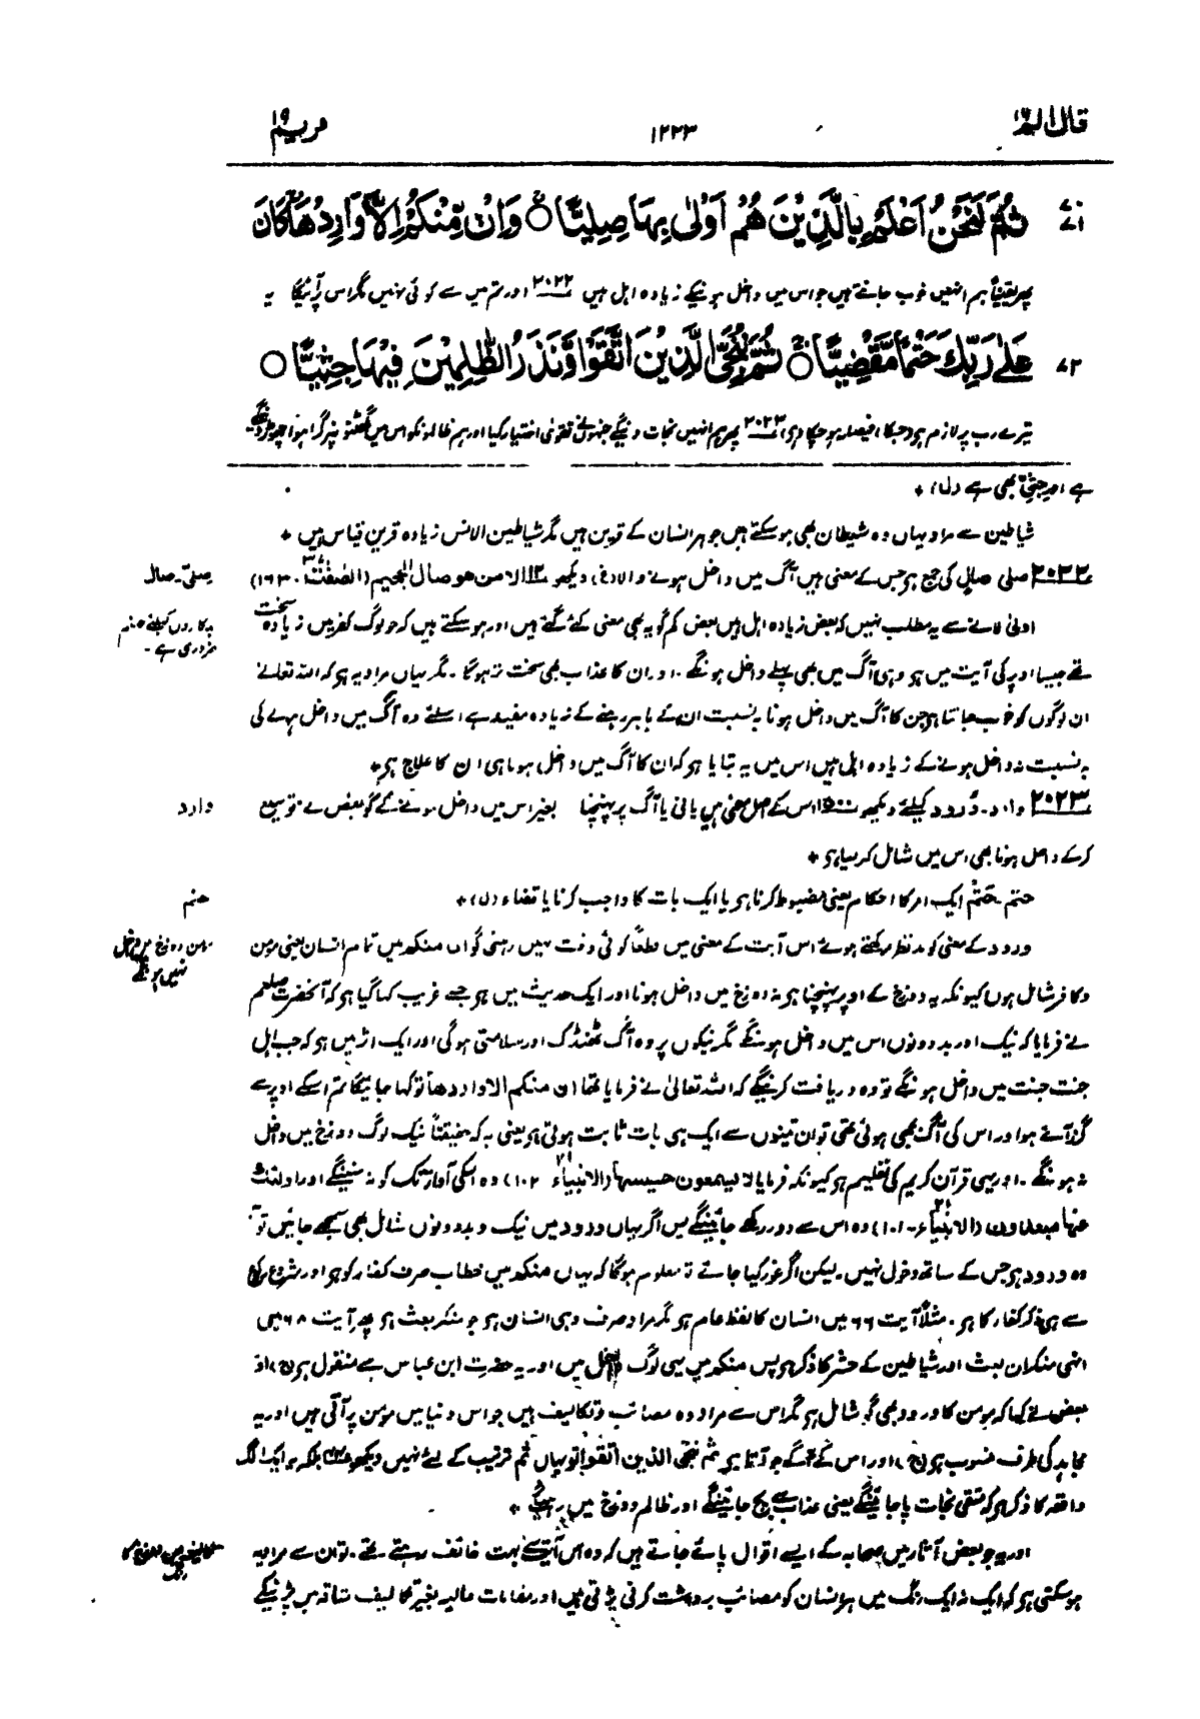 قال الم ۱۶
۱۲۲۳
مریم ۱۹
۷۰ ثُمَّ لَنَحْنُ اَعْلَمُ بِالَّذِیْنَ هُمْ اَوْلٰی بِهَا صِلِیًّا ○ وَاِنْ مِّنْكُمْ اِلَّا وَارِدُهَا كَانَ
پھر یقیناً ہم انھیں خوب جانتے ہیں جو اس میں داخل ہونیکے زیادہ اہل ہیں ۲۰۲۲ اور تم میں سے کوئی نہیں مگر اس پر آئیگا یہ
۷۲ عَلٰی رَبِّكَ حَتْمًا مَّقْضِیًّا ○ ثُمَّ نُنَجِّی الَّذِیْنَ اتَّقَوْا وَّنَذَرُ الظّٰلِمِیْنَ فِیْهَا جِثِیًّا ○
تیرے رب پر لازم ہے جسکا فیصلہ ہو چکا ہے ۲۰۲۳ پھر ہم انھیں نجات دینگے جنہوں نے تقویٰ اختیار کیا اور ہم ظالمونکو اس میں گھٹنوں پر گرا ہوا چھوڑ دینگے۔
ہے اور جثی بھی ہے (ل) +
شیاطین سے مراد یہاں وہ شیطان بھی ہو سکتے ہیں جو ہر انسان کے قرین ہیں مگر شیاطین الانس زیادہ قرین قیاس ہیں +
۲۰۲۲ صلی صال کی جمع ہے جس کے معنی ہیں آگ میں داخل ہونے والا (غ) دیکھو الا من هو صال الجحیم (الصّٰفّٰت ۳۷۔ ۱۶۳)
صلی۔ صال
اولیٰ لانے سے یہ مطلب نہیں کہ بعض زیادہ اہل ہیں بعض کم گو یہ بھی معنی کئے گئے ہیں اور ہو سکتے ہیں کہ جو لوگ کفر میں زیادہ سخت
بدکاروں کیلئے جہنم ضروری ہے۔
تھے جیسا اوپر کی آیت میں ہے وہی آگ میں بھی پہلے داخل ہونگے۔ اور ان کا عذاب بھی سخت تر ہوگا۔ مگر یہاں مراد یہ ہے کہ اللہ تعالےٰ
ان لوگوں کو خوب جانتا ہے جن کا آگ میں داخل ہونا بہ نسبت ان کے باہر رہنے کے زیادہ مفید ہے، اسلئے وہ آگ میں داخل ہونے کی
بہ نسبت نہ داخل ہونے کے زیادہ اہل ہیں اس میں یہ بتایا ہے کہ ان کا آگ میں داخل ہونا ہی ان کا علاج ہے +
۲۰۲۳ وارد۔ وُرود کیلئے دیکھو اس کے اصل معنی ہیں پانی یا آگ پر پہنچنا بغیر اس میں داخل ہونے کے گو بعض نے توسیع
وارد
کرکے داخل ہونا بھی اس میں شامل کر لیا ہے +
حتم۔ حَتْمٌ ایک امر کا احکام یعنی مضبوط کرنا ہے یا ایک بات کا واجب کرنا یا قضاء (ل) +
حتم
ورود کے معنی کو مدنظر رکھتے ہوئے اس آیت کے معنی میں قطعاً کوئی دقت نہیں رہتی گو ان منکم میں تمام انسان یعنی مومن
مومن دوزخ میں داخل نہیں ہونگے
و کافر شامل ہوں کیونکہ یہ دوزخ کے اوپر پہنچنا ہے نہ دوزخ میں داخل ہونا اور ایک حدیث میں ہے جسے غریب کہا گیا ہے کہ آنحضرت صلعم
نے فرمایا کہ نیک اور بد دونوں اس میں داخل ہونگے مگر نیکوں پر وہ آگ ٹھنڈک اور سلامتی ہوگی اور ایک اثر میں ہے کہ جب اہل
جنت جنت میں داخل ہونگے تو وہ دریافت کرینگے کہ اللہ تعالیٰ نے فرمایا تھا ان منکم الا واردها تو کہا جائیگا تم اسکے اوپر سے
گزر آئے ہو اور اس کی آگ بجھی ہوئی تھی تو ان تینوں سے ایک ہی بات ثابت ہوتی ہے یعنی یہ کہ حقیقتاً نیک لوگ دوزخ میں داخل
نہ ہونگے۔ اور یہی قرآن کریم کی تعلیم ہے کیونکہ فرمایا لا یسمعون حسیسها (الانبیاء ۲۱۔ ۱۰۲) وہ اسکی آواز تک کو نہ سنینگے اور اولئك
عنها مبعدون (الانبیاء ۲۱۔ ۱۰۱) وہ اس سے دور رکھے جائینگے پس اگر یہاں ورود میں نیک و بد دونوں شامل بھی سمجھے جائیں تو
وہ ورود ہے جس کے ساتھ دخول نہیں۔ لیکن اگر غور کیا جائے تو معلوم ہوگا کہ یہاں منکم میں خطاب صرف کفار کو ہے اور شروع رکوع
سے ہی ذکر کفار کا ہے۔ مثلاً آیت ۶۶ میں انسان کا لفظ عام ہے مگر مراد صرف وہی انسان ہے جو منکر بعث ہے پھر آیت ۶۸ میں
انہی منکران بعث اور شیاطین کے حشر کا ذکر ہے پس منکم میں یہی لوگ داخل ہیں اور یہ حضرت ابن عباس سے منقول ہے (ج) اور
بعض نے کہا کہ مومن کا ورود بھی گو شامل ہے مگر اس سے مراد وہ مصائب و تکالیف ہیں جو اس دنیا میں مومن پر آتی ہیں اور یہ
مجاہد کی طرف منسوب ہے (ج) اور اس کے آگے جو آتا ہے ثم ننجی الذین اتقوا تو یہاں ثم ترتیب کے لئے نہیں دیکھو بلکہ ہر ایک الگ
واقعہ کا ذکر ہے کہ متقی نجات پا جائینگے یعنی عذاب سے بچ جائینگے اور ظالم دوزخ میں رہینگے +
اور یہ جو بعض آثار میں صحابہ کے ایسے اقوال پائے جاتے ہیں کہ وہ اس آیت سے بہت خائف رہتے تھے۔ تو ان سے مراد یہ
ہو سکتی ہے کہ ایک نہ ایک رنگ میں ہر انسان کو مصائب برداشت کرنی پڑتی ہیں اور مقامات عالیہ بغیر تکالیف شاقہ میں پڑنیکے